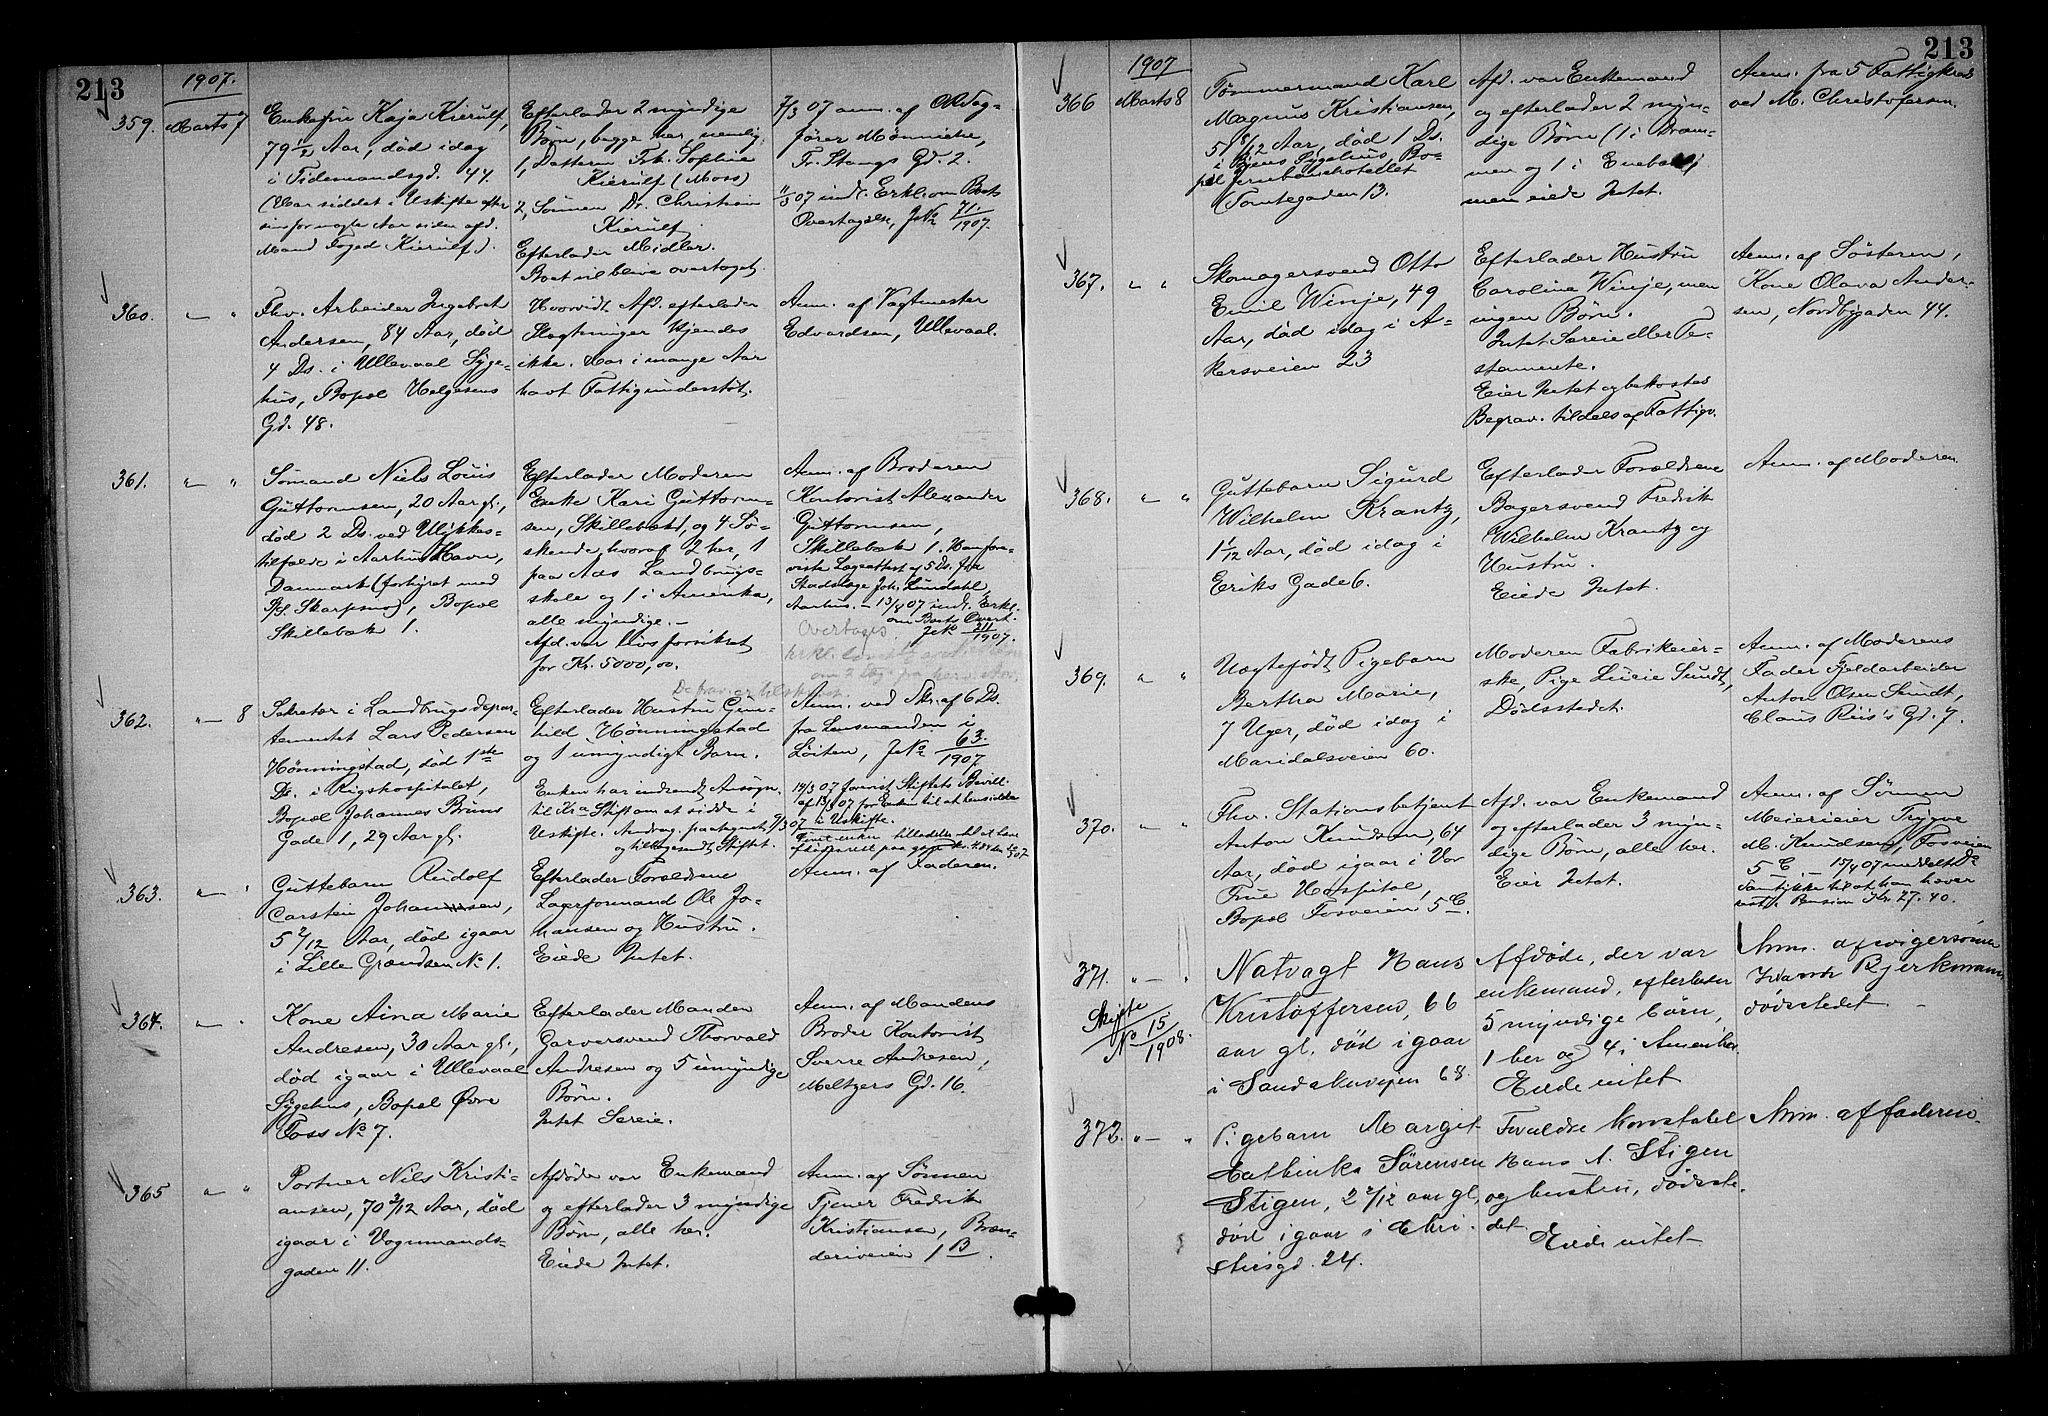 213
1907.
359. Marts 7
Enkefru Kaja Kierulf,
79 1/2 Aar, død idag
i Tidemandsgd. 44.
(Har siddet i Uskifte efter
sin for nogle Aar siden afd.
Mand Foged Kierulf).
Efterlader 2 myndige
Børn, begge her, nemlig:
1, Datteren Frk. Sophie
Kierulf (Moss)
2, Sønnen Dr. Christian
Kierulf.
Efterlader Midler.
Boet vil blive overtaget.
7/3 07 anm. af
fører Mønniche,
Fr. Stangs Gd. 2.
11/5 07 indk. Erkl. om Boets
Overtagelse, J.No 71./1907.
360. " — "
Fhv. Arbeider Ingebret
Andersen, 84 Aar, død
4 Ds. i Ullevaal Syge-
hus, Bopæl Helgesens
Gd. 48.
Hvorvidt Afd. efterlader
Slægtninger kjendes
ikke. Har i mange Aar
havt Fattigunderstøt.
Anm. af Vagtmester
Edvardsen, Ullevaal.
361. " — "
Sømand Niels Louis
Guttormsen, 20 Aar gl.,
død 2 Ds. ved Ulykkes-
tilfælde i Aarhus Havn,
Danmark (forhyret med
S/S. Skarpsno), Bopæl
Skillebæk 1.
Efterlader Moderen
Enke Kari Guttorm-
sen, Skillebæk 1, og 4 Sø-
skende, hvoraf 2 her, 1
paa Aas Landbrugs-
skole og 1 i Amerika,
alle myndige. –
Afd. var livsforsikret
for Kr. 5000,00.
Anm. af Broderen
Kontorist Alexander
Guttormsen,
Skillebæk 1. Han fore-
viste Lægeattest af 5 Ds. fra
Stadslæge Joh. Lundahl
Aarhus. – 13/8 07 indk. Erkl.
om Boets Overt.
J.No 211/1907.
Overtages.
362. " — 8
Sekretær i Landbrugsdepar-
tementet Lars Pedersen
Hønningstad, død 1ste
Ds. i Rigshospitalet,
Bopæl Johannes Bruns
Gade 1, 29 Aar gl.
Efterlader Hustru Gun-
hild Hønningstad
og 1 umyndigt Barn.
Enken har indsendt Ansøgn.
til Kra Stift om at sidde i
Uskifte. Andrag. paategnet 7/3 07
og tilbagesendt Stiftet.
Anm. ved Skr. af 6 Ds.
fra Lensmanden i
Løiten, J.No 63./1907.
14/3 07 forevist Stiftets Bevill.
af 13/3 07 for Enken til at hensidde
i Uskifte.
363. " — "
Guttebarn Rudolf
Carstein Johansen,
5 2/12 Aar, død igaar
i Lille Grændsen No 1.
Efterlader Forældrene
Lagerformand Ole Jo-
hansen og Hustru.
Eiede Intet.
Anm. af Faderen.
364. " — "
Kone Aina Marie
Andresen, 30 Aar gl.,
død igaar i Ullevaal
Sygehus, Bopæl Øvre
Foss No 7.
Efterlader Manden
Garversvend Thorvald
Andresen og 5 umyndige
Børn.
Intet Særeie.
Anm. af Mandens
Broder Kontorist
Sverre Andresen,
Meltzers Gd. 16.
365 " — "
Portner Nils Kristi-
ansen, 70 3/12 Aar, død
igaar i Vognmands-
gaden 11.
Afdøde var Enkemand
og efterlader 3 myndige
Børn, alle her.
Eiede Intet.
Anm. af Sønnen
Tjener Fredrik
Kristiansen, Bræn-
deriveien 1 B.
213
1907
366 Marts 8
Tømmermand Karl
Magnus Kristiansen,
5 8/12 Aar, død 1 Ds.
i Byens Sygehus, Bo-
pæl Jernbanehotellet
(Tomtegaden 13.
Afd. var Enkemand
og efterlader 2 myn-
dige Børn (1 i Dram-
men og 1 i Enebak)
men eiede Intet.
Anm. fra 5 Fattigkreds
ved M. Christofersen.
367. " — "
Skomagersvend Otto
Emil Winje, 49
Aar, død idag i A-
kersveien 23
Efterlader Hustru
Caroline Winje, men
ingen Børn.
Intet Særeie eller Te-
stamente.
Eier Intet og bekostes
Begrav. tildels af Fattigv.
Anm. af Søsteren,
Kone Olava Ander-
sen, Nordbygaden 44.
368. " — "
Guttebarn Sigurd
Wilhelm Krantz,
1 1/12 Aar, død idag i
Eriks Gade 6.
Efterlader Forældrene
Bagersvend Fredrik
Wilhelm Krantz og
Hustru.
Eiede Intet.
Anm. af Moderen
369. " "
Uægtefødt Pigebarn
Bertha Marie,
7 Uger, død idag i
Maridalsveien 60.
Moderen Fabrikeier-
ske, Pige Sundt,
Dødsstedet.
Anm. af Moderens
Fader Gjeldarbeider
Anton Olsen Sundt,
Claus Riis's Gd. 7.
370. " — "
Fhv. Stationsbetjent
Anton Knudsen, 64
Aar, død igaar i Vor
Frue Hospital,
Bopæl Fosveien 5 C.
Afd. var Enkemand
og efterlader 3 myn-
dige Børn, alle her.
Eier Intet.
Anm. af Sønnen
Meierieier Trygve
M. Knudsen, Fosveien
5 C. – 15/4 07 meddelt
Samtykke til at han hæver
Pension Kr. 27.40.
371. " — "
Skifte
No 15/1908.
Natvagt Hans
Kristoffersen, 66
aar gl. død igaar
i Sandakervejen 68.
Afdøde, der var
enkemand, efterlader
5 myndige børn,
1 her og 4 i Amerika.
Eiede intet
Anm. af svigersønen
Bjerkmann
dødsstedet. –
372. " — "
Pigebarn Margit
Cathinka Sørensen
Stigen, 2 2/12 aar gl,
død igaar i Chri-
stiesgd. 24.
Forældre konstabel
Hans A. Stigen
og hustru, dødste-
det.
Eiede intet
Anm. af faderen.